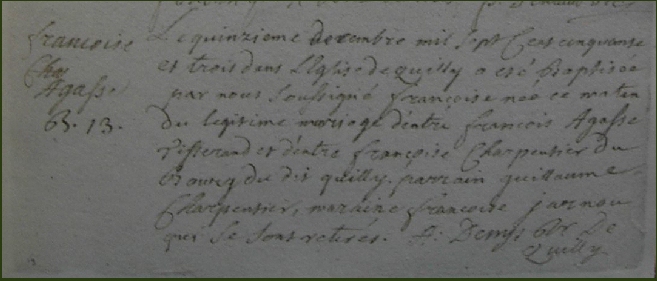 francoise
Agasse
B. 13.
Le quinzieme decembre mil sept Cent cinquante
et trois dans L'Eglise de quilly a eté Baptisée
par nous soussigné françoise née ce matin
du legitime mariage d'entre françois Agasse
Tisserand et d'entre françoise Charpentier du
Bourg du dit quilly. parrain guillaume
Charpentier, maraine francoise jarnou
qui se sont retirés. Denys De
Quilly